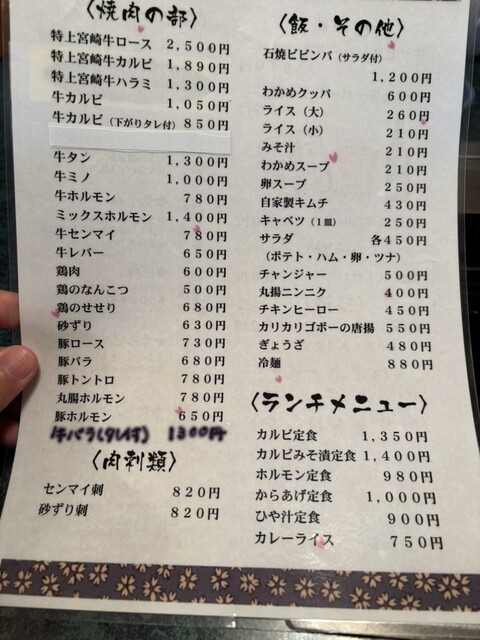 〈焼肉の部〉
特上宮崎牛ロース 2,500円
特上宮崎牛カルビ 1,890円
特上宮崎牛ハラミ 1,300円
牛カルビ 1,050円
牛カルビ (下がりタレ付) 850円
牛タン 1,300円
牛ミノ 1,000円
牛ホルモン 780円
ミックスホルモン 1,400円
牛センマイ 780円
牛レバー 650円
鶏肉 600円
鶏のなんこつ 500円
鶏のせせり 680円
砂ずり 630円
豚ロース 730円
豚バラ 680円
豚トントロ 780円
丸腸ホルモン 780円
豚ホルモン 650円
牛バラ(タレ付) 1300円
〈肉刺類〉
センマイ刺 820円
砂ずり刺 820円
〈飯・その他〉
石焼ビビンバ (サラダ付)
1,200円
わかめクッパ 600円
ライス (大) 260円
ライス (小) 210円
みそ汁 210円
わかめスープ 210円
卵スープ 250円
自家製キムチ 430円
キャベツ (1皿) 250円
サラダ 各450円
(ポテト・ハム・卵・ツナ)
チャンジャー 500円
丸揚ニンニク 400円
チキンヒーロー 450円
カリカリゴボーの唐揚 550円
ぎょうざ 480円
冷麺 880円
〈ランチメニュー〉
カルビ定食 1,350円
カルビみそ漬定食 1,400円
ホルモン定食 980円
からあげ定食 1,000円
ひや汁定食 900円
カレーライス 750円